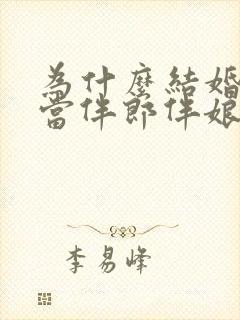 為什麼結婚
當伴郎伴娘
李易峰